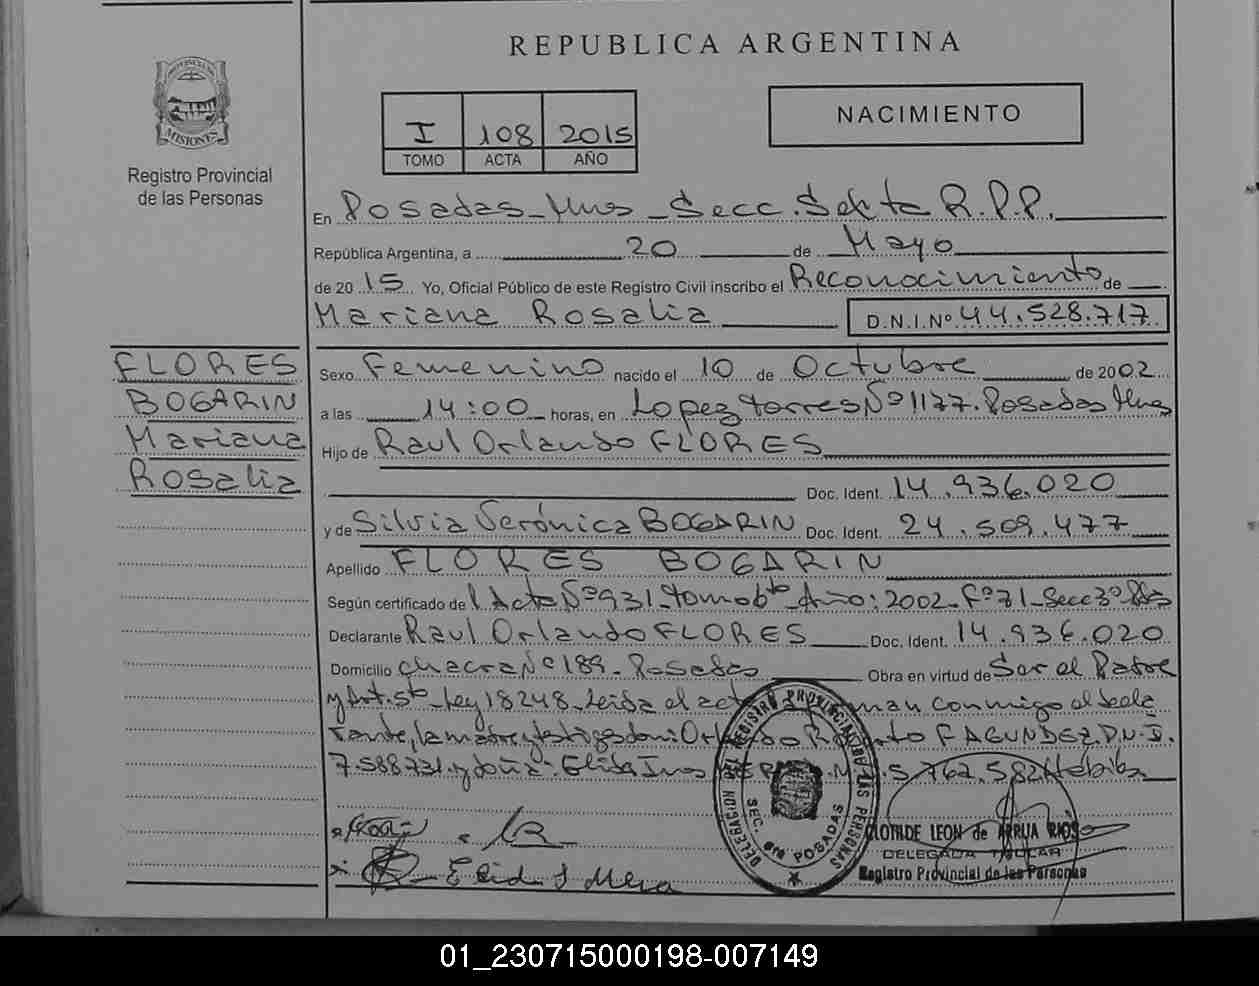 REPUBLICA ARGENTINA
PROVINCIA DE
MISIONES
Registro Provincial
de las Personas
I 108 2015
TOMO ACTA AÑO
NACIMIENTO
En Posadas_Mnes_Secc.Sexta R.P.P.
República Argentina, a 20 de Mayo
de 2015 Yo, Oficial Público de este Registro Civil inscribo el Reconocimiento de
Mariana Rosalia D.N.I.Nº 44.528.717
FLORES
BOGARIN
Mariana
Rosalia
Sexo Femenino nacido el 10 de Octubre de 2002
a las 14:00 horas, en Lopez torres Nº 1177. Posadas Mnes
Hijo de Raul Orlando FLORES
Doc. Ident. 14.936.020
y de Silvia Verónica BOGARIN Doc. Ident. 24.509.477
Apellido FLORES BOGARIN
Según certificado de Acta Nº 931_tomo 6to_Año: 2002_Fº 71_Secc 3º Pdas
Declarante Raul Orlando FLORES Doc. Ident. 14.936.020
Domicilio chacra Nº 189_Posadas Obra en virtud de Ser el Padre
y Art. 5to_Ley 18248_Leida el acta firman conmigo el decla
rante, la madre y testigos don: Orlando FAGUNDEZ D.N.I.
7.588.731. y doña: Elida Ines 5.762.582 Habibs
DELEGACION DEL REGISTRO PROVINCIAL DE LAS PERSONAS
SEC. 6ta POSADAS
Elida I Mera
CLOTILDE LEON de ARRUA RIOS
DELEGADA TITULAR
Registro Provincial de las Personas
01_230715000198-007149